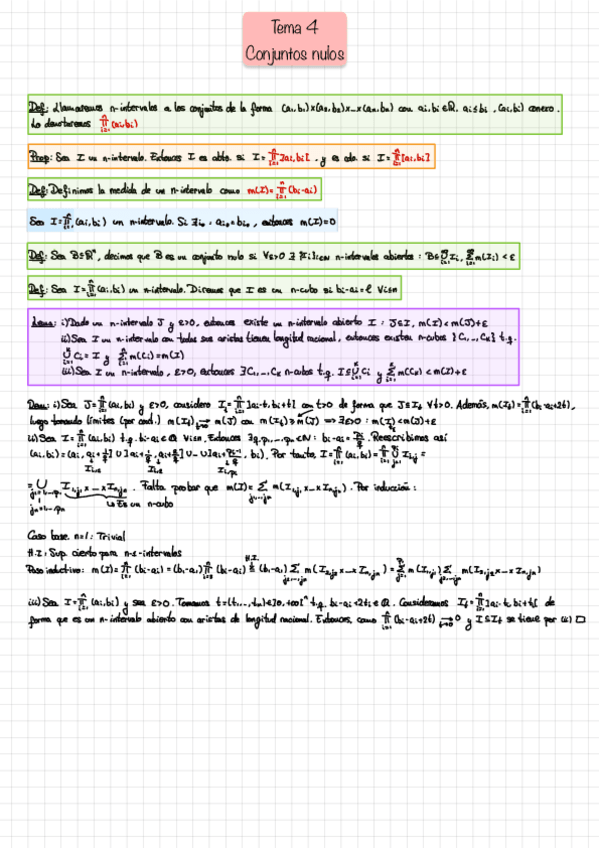 Tema 4
Conjuntos nulos
Def: Llamaremos n-intervalos a los conjuntos de la forma (a₁,b₁)x(a₂,b₂)x...x(aₙ,bₙ) con aᵢ,bᵢ∈ℝ. aᵢ≤bᵢ, (aᵢ,bᵢ) conexo.
Lo denotaremos ∏ᵢ₌₁ⁿ(aᵢ,bᵢ)
Prop: Sea I un n-intervalo. Entonces I es abto. si I=∏ᵢ₌₁ⁿ]aᵢ,bᵢ[, y es cdo. si I=∏ᵢ₌₁ⁿ[aᵢ,bᵢ]
Def: Definimos la medida de un n-intervalo como m(I)=∏ᵢ₌₁ⁿ(bᵢ-aᵢ)
Sea I=∏ᵢ₌₁ⁿ(aᵢ,bᵢ) un n-intervalo. Si ∃i₀: aᵢ₀=bᵢ₀, entonces m(I)=0
Def: Sea B⊆ℝⁿ, decimos que B es un conjunto nulo si ∀ε>0 ∃ {Iᵢ}ᵢ∈ℕ n-intervalos abiertos: B⊆⋃Iᵢ, ∑m(Iᵢ)<ε
Def: Sea I=∏ᵢ₌₁ⁿ(aᵢ,bᵢ) un n-intervalo. Diremos que I es un n-cubo si bᵢ-aᵢ=ℓ ∀i≤n
Lema: i) Dado un n-intervalo J y ε>0, entonces existe un n-intervalo abierto I: J⊆I, m(I)<m(J)+ε
ii) Sea I un n-intervalo con todas sus aristas tienen longitud racional, entonces existen n-cubos {C₁,...,Cₖ} t.q.
⋃Cᵢ=I y ∑m(Cᵢ)=m(I)
iii) Sea I un n-intervalo, ε>0, entonces ∃C₁,...,Cₖ n-cubos t.q. I⊆⋃Cᵢ y ∑m(Cₖ)<m(I)+ε
Dem: i) Sea J=∏ᵢ₌₁ⁿ(aᵢ,bᵢ) y ε>0, considero Iₜ=∏ᵢ₌₁ⁿ]aᵢ-t,bᵢ+t[ con t>0 de forma que J⊆Iₜ ∀t>0. Además, m(Iₜ)=∏ᵢ₌₁ⁿ(bᵢ-aᵢ+2t),
luego tomando límites
ii) Sea I=∏ᵢ₌₁ⁿ(aᵢ,bᵢ) t.q. bᵢ-aᵢ∈ℚ ∀i≤n. Entonces ∃q,p₁,...,pₙ∈ℕ: bᵢ-aᵢ=pᵢ/q. Reescribimos así
Por tanto, I=∏ᵢ₌₁ⁿ(aᵢ,bᵢ)=
Falta probar que m(I)=∑ m(I₁,ⱼ₁x...xIₙ,ⱼₙ). Por inducción:
Es un n-cubo
Caso base. n=1: Trivial
H.I: Sup. cierto para n-1-intervalos
Paso inductivo: m(I)=∏ᵢ₌₁ⁿ(bᵢ-aᵢ)=(b₁-a₁)∏ᵢ₌₂ⁿ(bᵢ-aᵢ)
iii) Sea I=∏ᵢ₌₁ⁿ(aᵢ,bᵢ) y sea ε>0. Tomamos t=(t₁,...,tₙ)∈]0,+∞[ⁿ t.q. bᵢ-aᵢ+2tᵢ∈ℚ. Consideramos Iₜ=∏ᵢ₌₁ⁿ]aᵢ-t,bᵢ+t[ de
forma que es un n-intervalo abierto con aristas de longitud racional. Entonces, como ∏ᵢ₌₁ⁿ(bᵢ-aᵢ+2t) y I⊆Iₜ se tiene por (ii) □